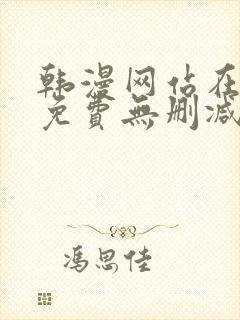 韩漫网站在
免費無删减
冯思佳